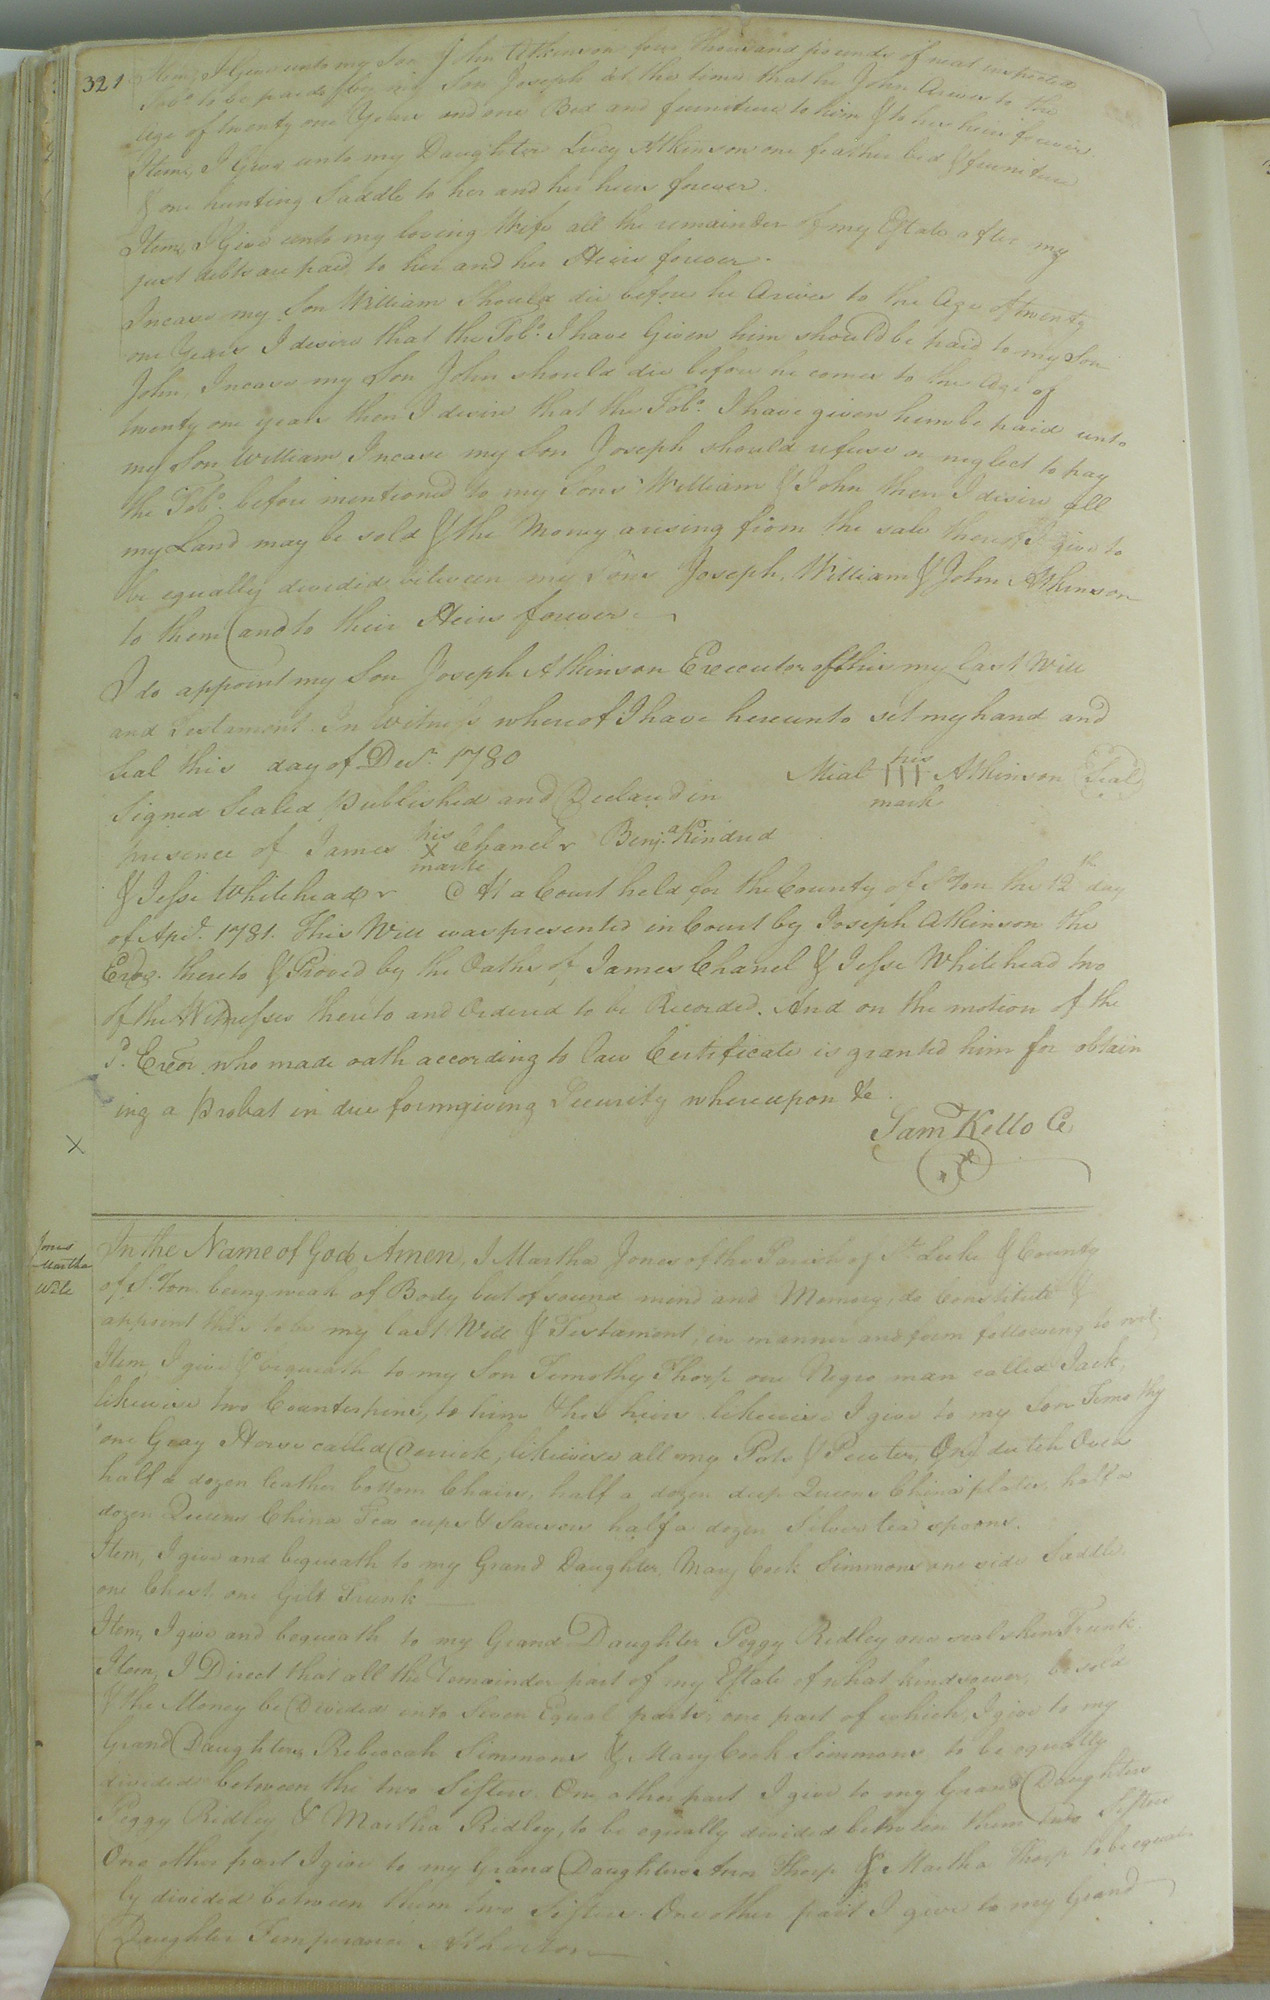 321
Item, I Give unto my Son John Atkinson four thousand pounds of neat inspected
Tobo. to be paid by my Son Joseph at the time that he John Arives to the
Age of twenty one Years and one Bed and furniture to him & to his heirs forever.
Item, I Give unto my Daughter Lucy Atkinson one feather bed & furniture
& one hunting Saddle to her and her heirs forever.
Item, I Give unto my loving Wife all the remainder of my Estate after my
just debts are paid to her and her Heirs forever.
Incase my Son William Should die before he Arives to the Age of twenty
one Years I desire that the Tobo. I have Given him should be paid to my Son
John, Incase my Son John should die before he comes to the Age of
twenty one years then I desire that the Tobo. I have given him be paid unto
my Son William, Incase my Son Joseph should refuse or neglect to pay
the Tobo. before mentioned to my Sons William & John then I desire all
my Land may be sold & the Money arising from the sale thereof I give to
be equally divided between my Sons Joseph, William & John Atkinson
to them and to their Heirs forever.
I do appoint my Son Joseph Atkinson Executor of this my last Will
and Testament In Witness whereof I have hereunto set my hand and
Seal this day of Decr. 1780
his
Mial III Atkinson Seal
mark
Signed Sealed Published and Declared in
presence of James his X mark Chanel Benja. Kindred
& Jesse Whitehead At a Court held for the County of S.Ton the 12th day
of Apl. 1781. This Will was presented in Court by Joseph Atkinson the
Exor. thereto & Proved by the Oaths of James Chanel & Jesse Whitehead two
of the Witnesses thereto and Ordered to be Recorded. And on the motion of the
sd. Exor who made oath according to law Certificate is granted him for obtain
ing a Probat in due form giving Security whereupon &c.
Saml Kello C
X
Jones
Martha
Will
In the Name of God Amen, I Martha Jones of the Parish of St. Luke & County
of S.Ton being weak of Body but of sound mind and Memory, do Constitute &
appoint this to be my last Will & Testament, in manner and form following to wit.
Item, I give & bequeath to my Son Timothy Thorp one Negro man called Jack,
likewise two Counterpins, to him & his heirs likewise I give to my Son Timothy
one Gray Horse called, likewise all my Pots & Pewter, One dutch Oven
half a dozen leather bottom Chairs, half a dozen deep Queens China plates, half a
dozen Queens China Tea cups & Sausers half a dozen Silver tea spoons.
Item, I give and bequeath to my Grand Daughter Mary Cock Simmons one side Saddle
one Chest one Gilt Trunk
Item, I give and bequeath to my Grand Daughter Peggy Ridley one seal skin Trunk.
Item, I Direct that all the remainder part of my Estate of what kind soever, be sold
& the Money be Divided into Seven Equal parts, one part of which, I give to my
Grand Daughters Rebeccah Simmons & Mary Cock Simmons, to be equally
divided between the two Sisters. One other part I give to my Grand Daughters
Peggy Ridley & Martha Ridley, to be equally divided between them two Sisters
One other part I give to my Grand Daughters Ann Thorp & Martha Thorp to be equal
ly divided between them two Sisters. One other part I give to my Grand
Daughter Temperance Atherton